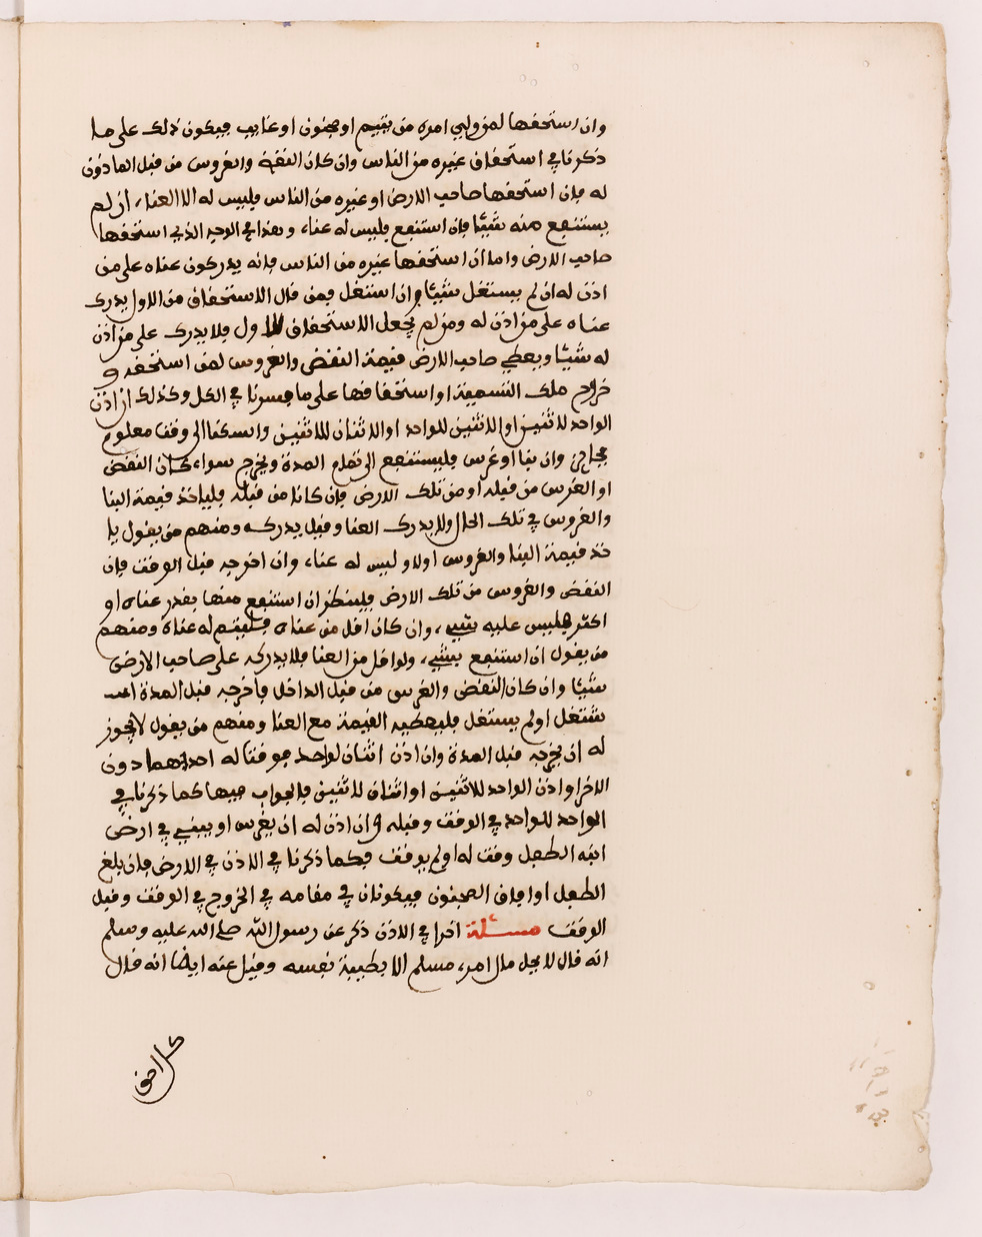 وان استحقها لمن ولي امره من يتيم او مجنون او غايب فيكون ذلك على ما
ذكرنا في استحقاق غيره من الناس وان كان النقض والغروس من قبل الماذون
له فان استحقها صاحب الارض او غيره من الناس فليس له الا العناء ان لم
يستنفع منه شيئا فان استنفع فليس له عناء وهذا في الوجه الذي استحقها
صاحب الارض واما ان استحقها غيره من الناس فانه يدركون عناه على من
اذن له ان لم يستغل شيئا وان استغل فمن قال الاستحقاق من الاول يدرك
عناه على من اذن له ومن لم يجعل الاستحقاق الاول فلا يدرك على من اذن
له شيئا ويعطي صاحب الارض قيمة النقض والغروس لمن استحقه و
خراج ملك التسمية او استحقاقها على ما فسرنا في الكل وكذلك ان اذن
الواحد للاثنين او الاثنين للواحد او الاثنان للاثنين والسكنا الى وقت معلوم
فجايز وان بنا او غرس فليستنفع الى تمام المدة ويخرج سواء كان النقض
او الغرس من قبله او من تلك الارض فان كانا من قبله فلياخذ قيمة البنا
والغروس في تلك الحال ولا يدرك العنا وقيل يدركه ومنهم من يقول يا
خذ قيمة البنا والغروس اولا وليس له عناء وان اخرجه قبل الوقت فان
النقض والغروس من تلك الارض فلينظر ان استنفع منها بقدر عناه او
اكثر فليس عليه شيء وان كان اقل من عناه فليتم له عناه ومنهم
من يقول ان استنفع بشيء ولو اقل من العنا فلا يدركه على صاحب الارض
شيئا وان كان النقض والغرس من قبل الداخل فاخرجه قبل المدة است
شتغل او لم يستغل فليعطيه القيمة مع العنا ومنهم من يقول لا يجوز
له ان يخرجه قبل المدة وان اذن اثنان لواحد فوقتا له احدهما دون
الاخر او اذن الواحد للاثنين او اثنان لاثنين فالجواب فيها كما ذكرنا في
الواحد للواحد في الوقت وقبله وان اذن له ان يغرس او يبني في ارض
ابنه الطفل وقت له او لم يوقت فكما ذكرنا في الاذن في الارض فان بلغ
الطفل او افاق المجنون فيكونان في مقامه في الخروج في الوقت وقبل
الوقت مسئلة اخرا في الاذن ذكر عن رسول الله صلى الله عليه وسلم
انه قال لا يحل مال امرء مسلم الا بطيبة نفسه وقيل عنه ايضا انه قال
كل احق